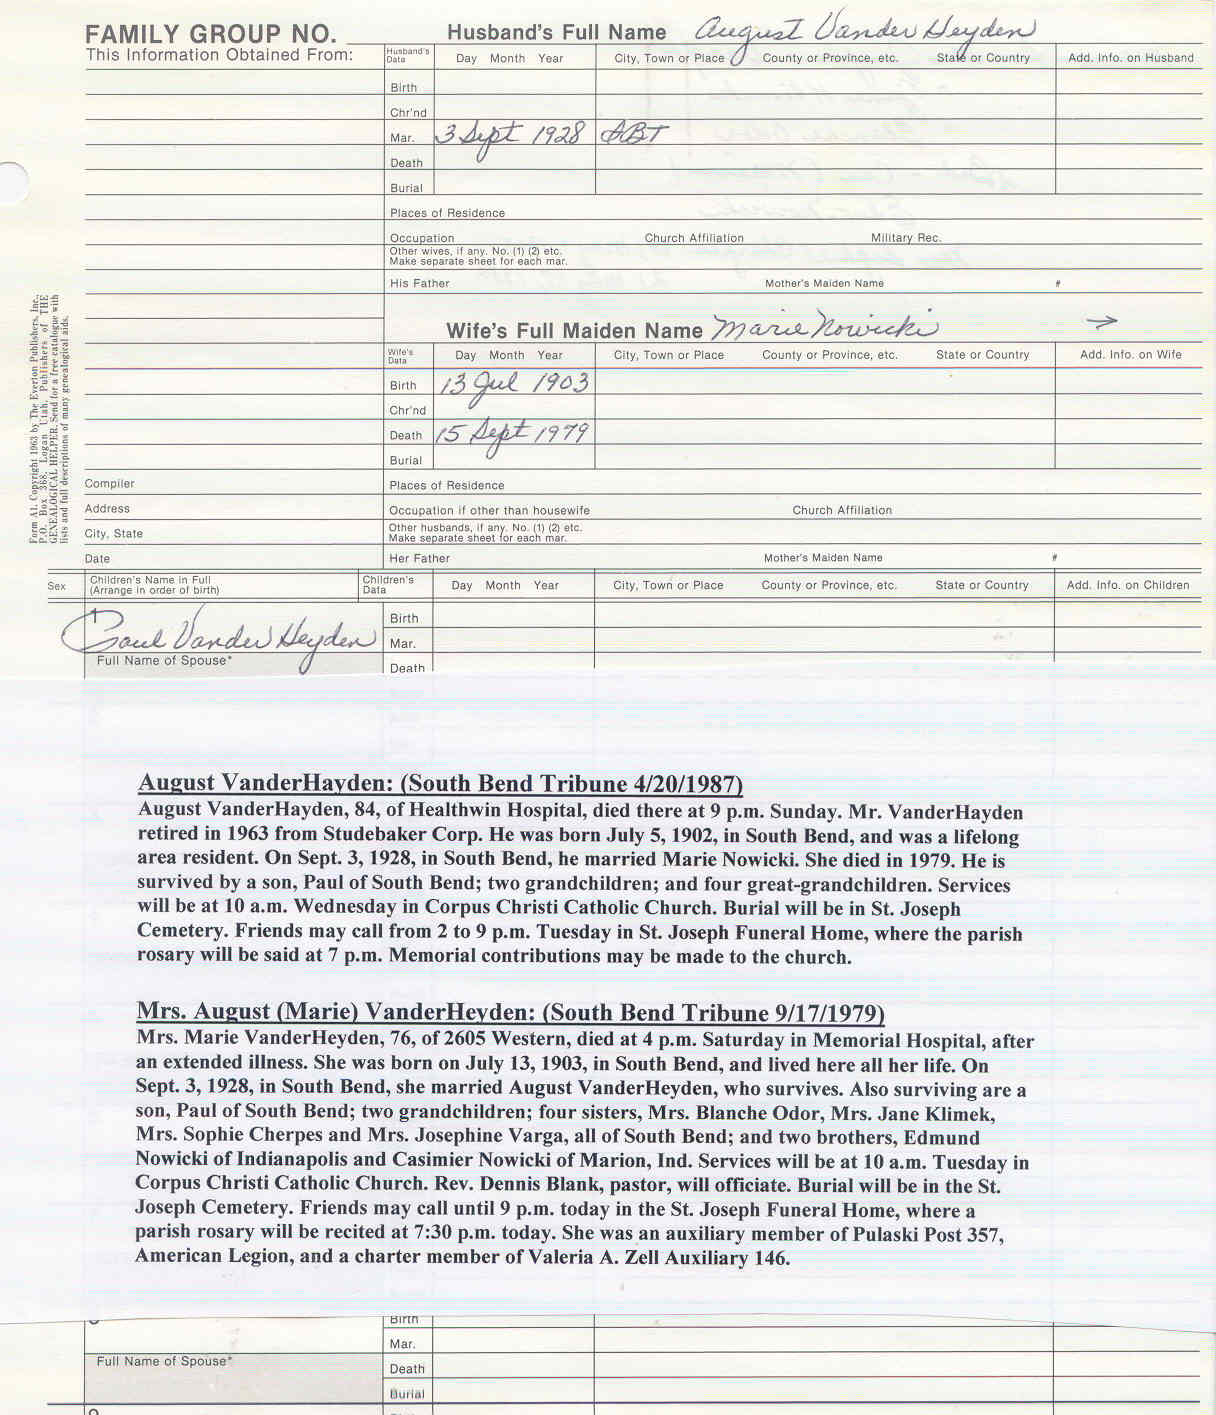 FAMILY GROUP NO.
Husband's Full Name August Vander Heyden
This Information Obtained From:
Husband's Data Day Month Year City, Town or Place County or Province, etc. State or Country Add. Info. on Husband
Birth
Chr'nd
Mar. 3 Sept 1928 SBT
Death
Burial
Places of Residence
Occupation Church Affiliation Military Rec.
Other wives, if any. No. (1) (2) etc.
Make separate sheet for each mar.
His Father Mother's Maiden Name #
Wife's Full Maiden Name Marie Nowicki →
Wife's Data Day Month Year City, Town or Place County or Province, etc. State or Country Add. Info. on Wife
Birth 13 Jul 1903
Chr'nd
Death 15 Sept 1979
Burial
Compiler Places of Residence
Address Occupation if other than housewife Church Affiliation
City, State Other husbands, if any. No. (1) (2) etc.
Make separate sheet for each mar.
Date Her Father Mother's Maiden Name #
Form A1. Copyright 1963 by The Everton Publishers, Inc.,
P.O. Box 368, Logan Utah. Publishers of THE
GENEALOGICAL HELPER. Send for a free catalogue with
lists and full descriptions of many genealogical aids.
Sex Children's Name in Full Children's Data Day Month Year City, Town or Place County or Province, etc. State or Country Add. Info. on Children
(Arrange in order of birth)
Birth
Paul Vander Heyden Mar.
Full Name of Spouse* Death
August VanderHayden: (South Bend Tribune 4/20/1987)
August VanderHayden, 84, of Healthwin Hospital, died there at 9 p.m. Sunday. Mr. VanderHayden
retired in 1963 from Studebaker Corp. He was born July 5, 1902, in South Bend, and was a lifelong
area resident. On Sept. 3, 1928, in South Bend, he married Marie Nowicki. She died in 1979. He is
survived by a son, Paul of South Bend; two grandchildren; and four great-grandchildren. Services
will be at 10 a.m. Wednesday in Corpus Christi Catholic Church. Burial will be in St. Joseph
Cemetery. Friends may call from 2 to 9 p.m. Tuesday in St. Joseph Funeral Home, where the parish
rosary will be said at 7 p.m. Memorial contributions may be made to the church.
Mrs. August (Marie) VanderHeyden: (South Bend Tribune 9/17/1979)
Mrs. Marie VanderHeyden, 76, of 2605 Western, died at 4 p.m. Saturday in Memorial Hospital, after
an extended illness. She was born on July 13, 1903, in South Bend, and lived here all her life. On
Sept. 3, 1928, in South Bend, she married August VanderHeyden, who survives. Also surviving are a
son, Paul of South Bend; two grandchildren; four sisters, Mrs. Blanche Odor, Mrs. Jane Klimek,
Mrs. Sophie Cherpes and Mrs. Josephine Varga, all of South Bend; and two brothers, Edmund
Nowicki of Indianapolis and Casimier Nowicki of Marion, Ind. Services will be at 10 a.m. Tuesday in
Corpus Christi Catholic Church. Rev. Dennis Blank, pastor, will officiate. Burial will be in the St.
Joseph Cemetery. Friends may call until 9 p.m. today in the St. Joseph Funeral Home, where a
parish rosary will be recited at 7:30 p.m. today. She was an auxiliary member of Pulaski Post 357,
American Legion, and a charter member of Valeria A. Zell Auxiliary 146.
Birth
Mar.
Full Name of Spouse* Death
Burial